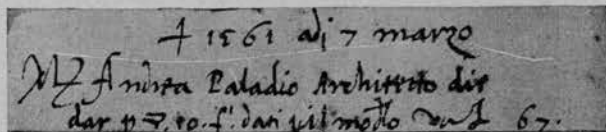 + 1561 adj 7 marzo
Mz Andrea Paladio Architetto die
dar p 10. f. dati modello val 67.